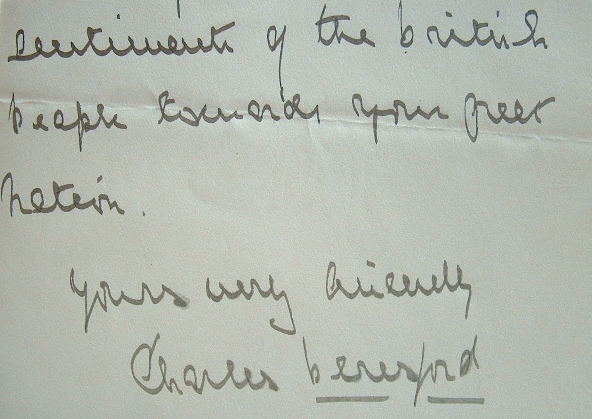 sentiments of the british
people towards your great
nation.
Yours very sincerely
Charles Beresford